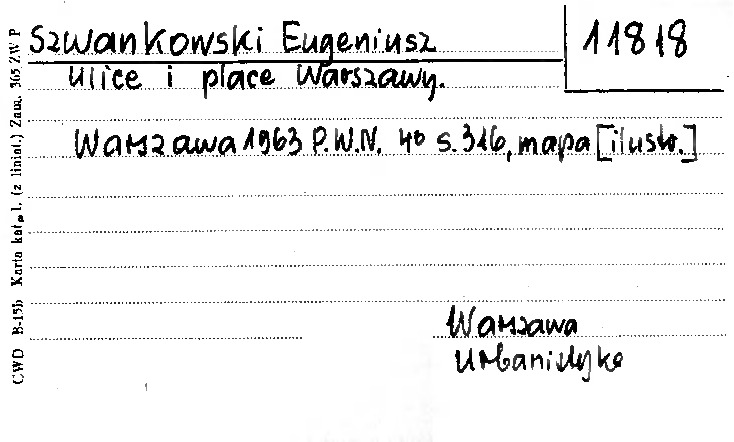 Szwankowski Eugeniusz
11818
Ulice i place Warszawy.
Warszawa 1963 P.W.N. 4º s. 316, mapa [ilustr.]
Warszawa
Urbanistyka
CWD B-15b Karta katal. (z liniat.) Zam. 365 ZWP